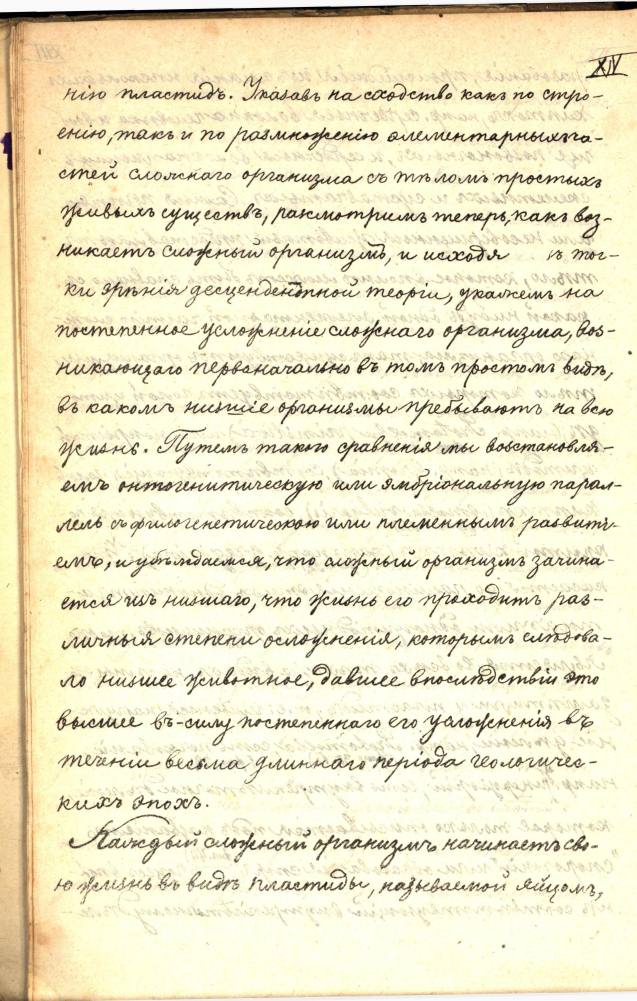 XIV
нію пластидъ. Указавъ на сходство какъ по стро-
енію, такъ и по размноженію элементарныхъ ча-
стей сложнаго организма съ тѣломъ простыхъ
живыхъ существъ, рассмотримъ теперь, какъ воз-
никаетъ сложный организмъ, и исходя съ точ-
ки зрѣнія десцендентной теоріи, укажемъ на
постепенное усложненіе сложнаго организма, воз-
никающаго первоначально въ томъ простомъ видѣ,
въ какомъ низшіе организмы пребываютъ на всю
жизнь. Путемъ такого сравненія мы возстановля-
емъ онтогенитическую или эмбріональную парал-
лель съ филогенетическою или племеннымъ развиті-
емъ, и убѣждаемся, что сложный организмъ зачина-
ется изъ низшаго, что жизнь его проходитъ раз-
личныя степени осложненія, которымъ слѣдова-
ло низшее животное, давшее впослѣдствіи это
высшее въ-силу постепеннаго его усложненія въ
теченіи весьма длиннаго періода геологичес-
кихъ эпохъ.
Каждый сложный организмъ начинаетъ сво-
ю жизнь въ видѣ пластиды, называемой яйцомъ,